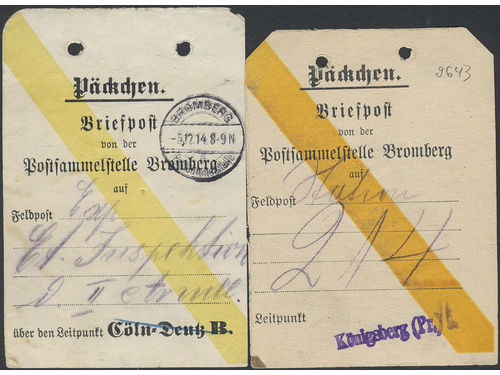 Päckchen.
Briefpost
von der
Postsammelstelle Bromberg
auf
Feldpost Exp
Et. Inspektion
d II Armee.
über den Leitpunkt Cöln-Deutz B.
BROMBERG
-5.12.14.8-9N
Päckchen.
9643
Briefpost
von der
Postsammelstelle Bromberg
auf
Feldpost Station
214
Leitpunkt
Königsberg (Pr.)